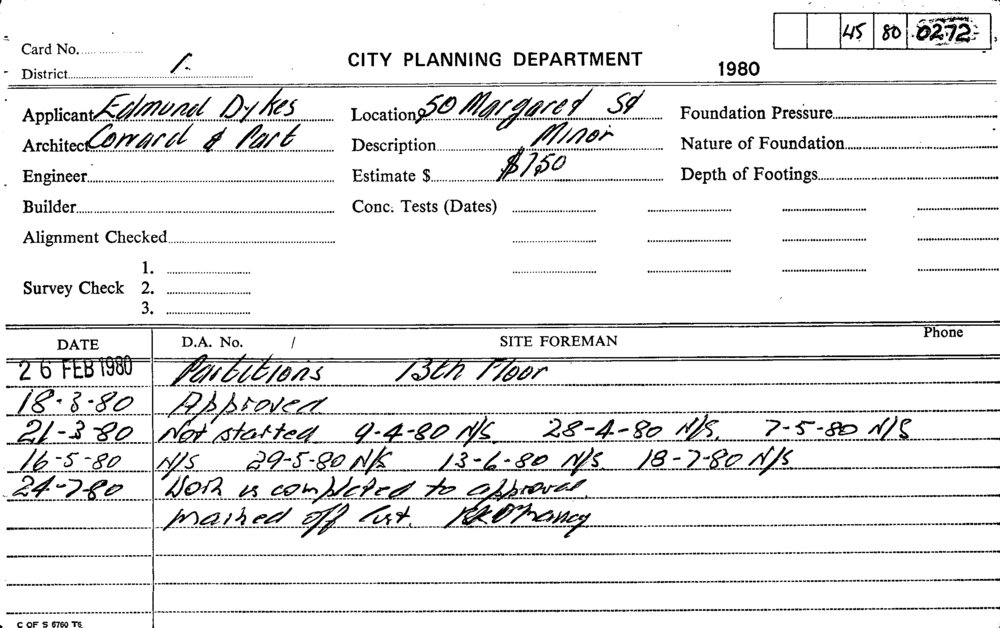 45 80 0272
Card No.
CITY PLANNING DEPARTMENT
District 1. 1980
Applicant Edmund Dykes Location 50 Margaret St Foundation Pressure
Architect Conrard & Part Description Minor Nature of Foundation
Engineer Estimate $ $750 Depth of Footings
Builder Conc. Tests (Dates)
Alignment Checked
1.
Survey Check 2.
3.
DATE D.A. No. / SITE FOREMAN Phone
26 FEB 1980 Partitions 13th Floor
18-3-80 Approved
21-3-80 Not started 9-4-80 N/S. 28-4-80 N/S. 7-5-80 N/S
16-5-80 N/S 29-5-80 N/S 13-6-80 N/S. 18-7-80 N/S
24-7-80 Work is completed to approval.
marked off list.
C OF S 6760 TS